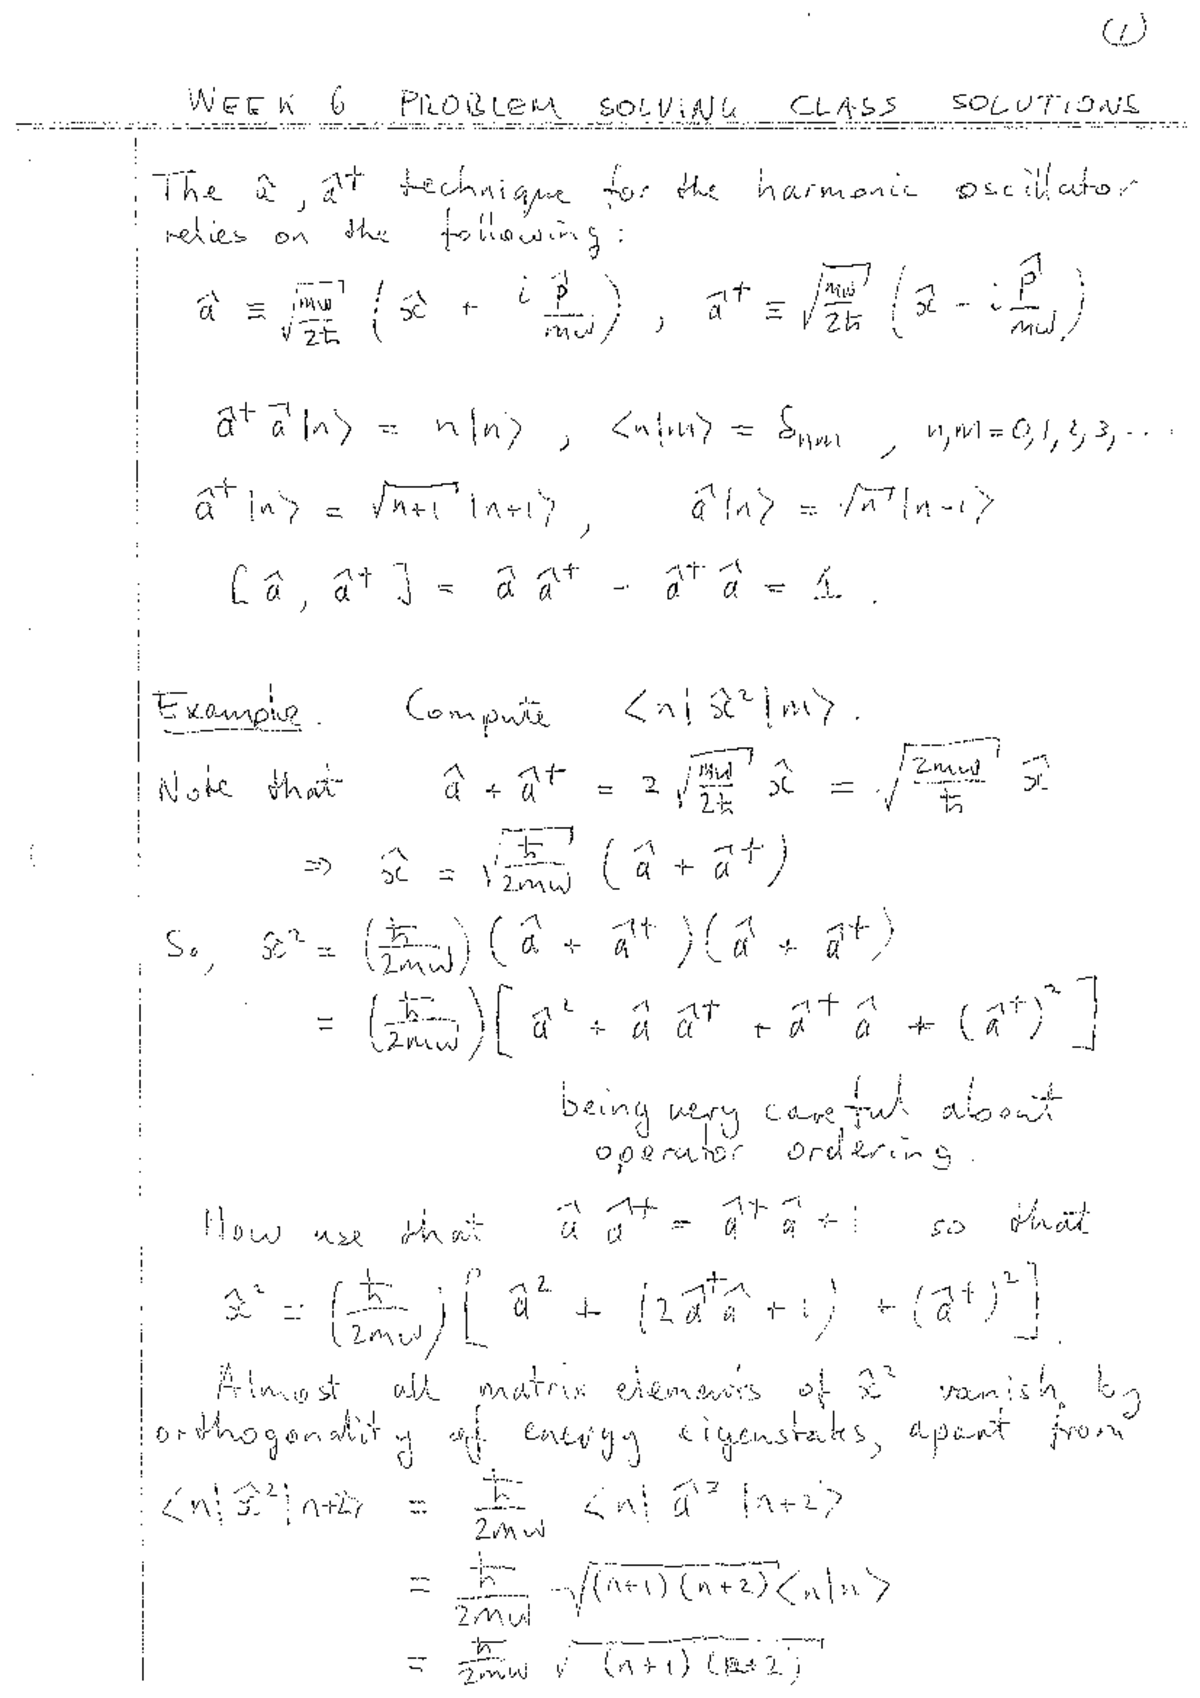 (1)
WEEK 6 PROBLEM SOLVING CLASS SOLUTIONS
The â, â† technique for the harmonic oscillator
relies on the following:
â ≡ √(mω/2ħ) (x̂ + i p̂/mω), ↠≡ √(mω/2ħ) (x̂ - i p̂/mω)
â†â|n⟩ = n|n⟩, ⟨n|m⟩ = δₙₘ, n,m = 0,1,2,3,...
â†|n⟩ = √(n+1) |n+1⟩, â|n⟩ = √n |n-1⟩
[â, â†] = â↠- â†â = 1.
Example. Compute ⟨n|x̂²|m⟩.
Note that â + ↠= 2 √(mω/2ħ) x̂ = √(2mω/ħ) x̂
⇒ x̂ = √(ħ/2mω) (â + â†)
So, x̂² = (ħ/2mω)(â + â†)(â + â†)
= (ħ/2mω)[â² + â↠+ â†â + (â†)²]
being very careful about
operator ordering.
Now use that â↠= â†â + 1 so that
x̂² = (ħ/2mω)[â² + (2â†â + 1) + (â†)²].
Almost all matrix elements of x̂² vanish, by
orthogonality of energy eigenstates, apart from
⟨n|x̂²|n+2⟩ = ħ/2mω ⟨n|â²|n+2⟩
= ħ/2mω √((n+1)(n+2)) ⟨n|n⟩
= ħ/2mω √((n+1)(n+2))